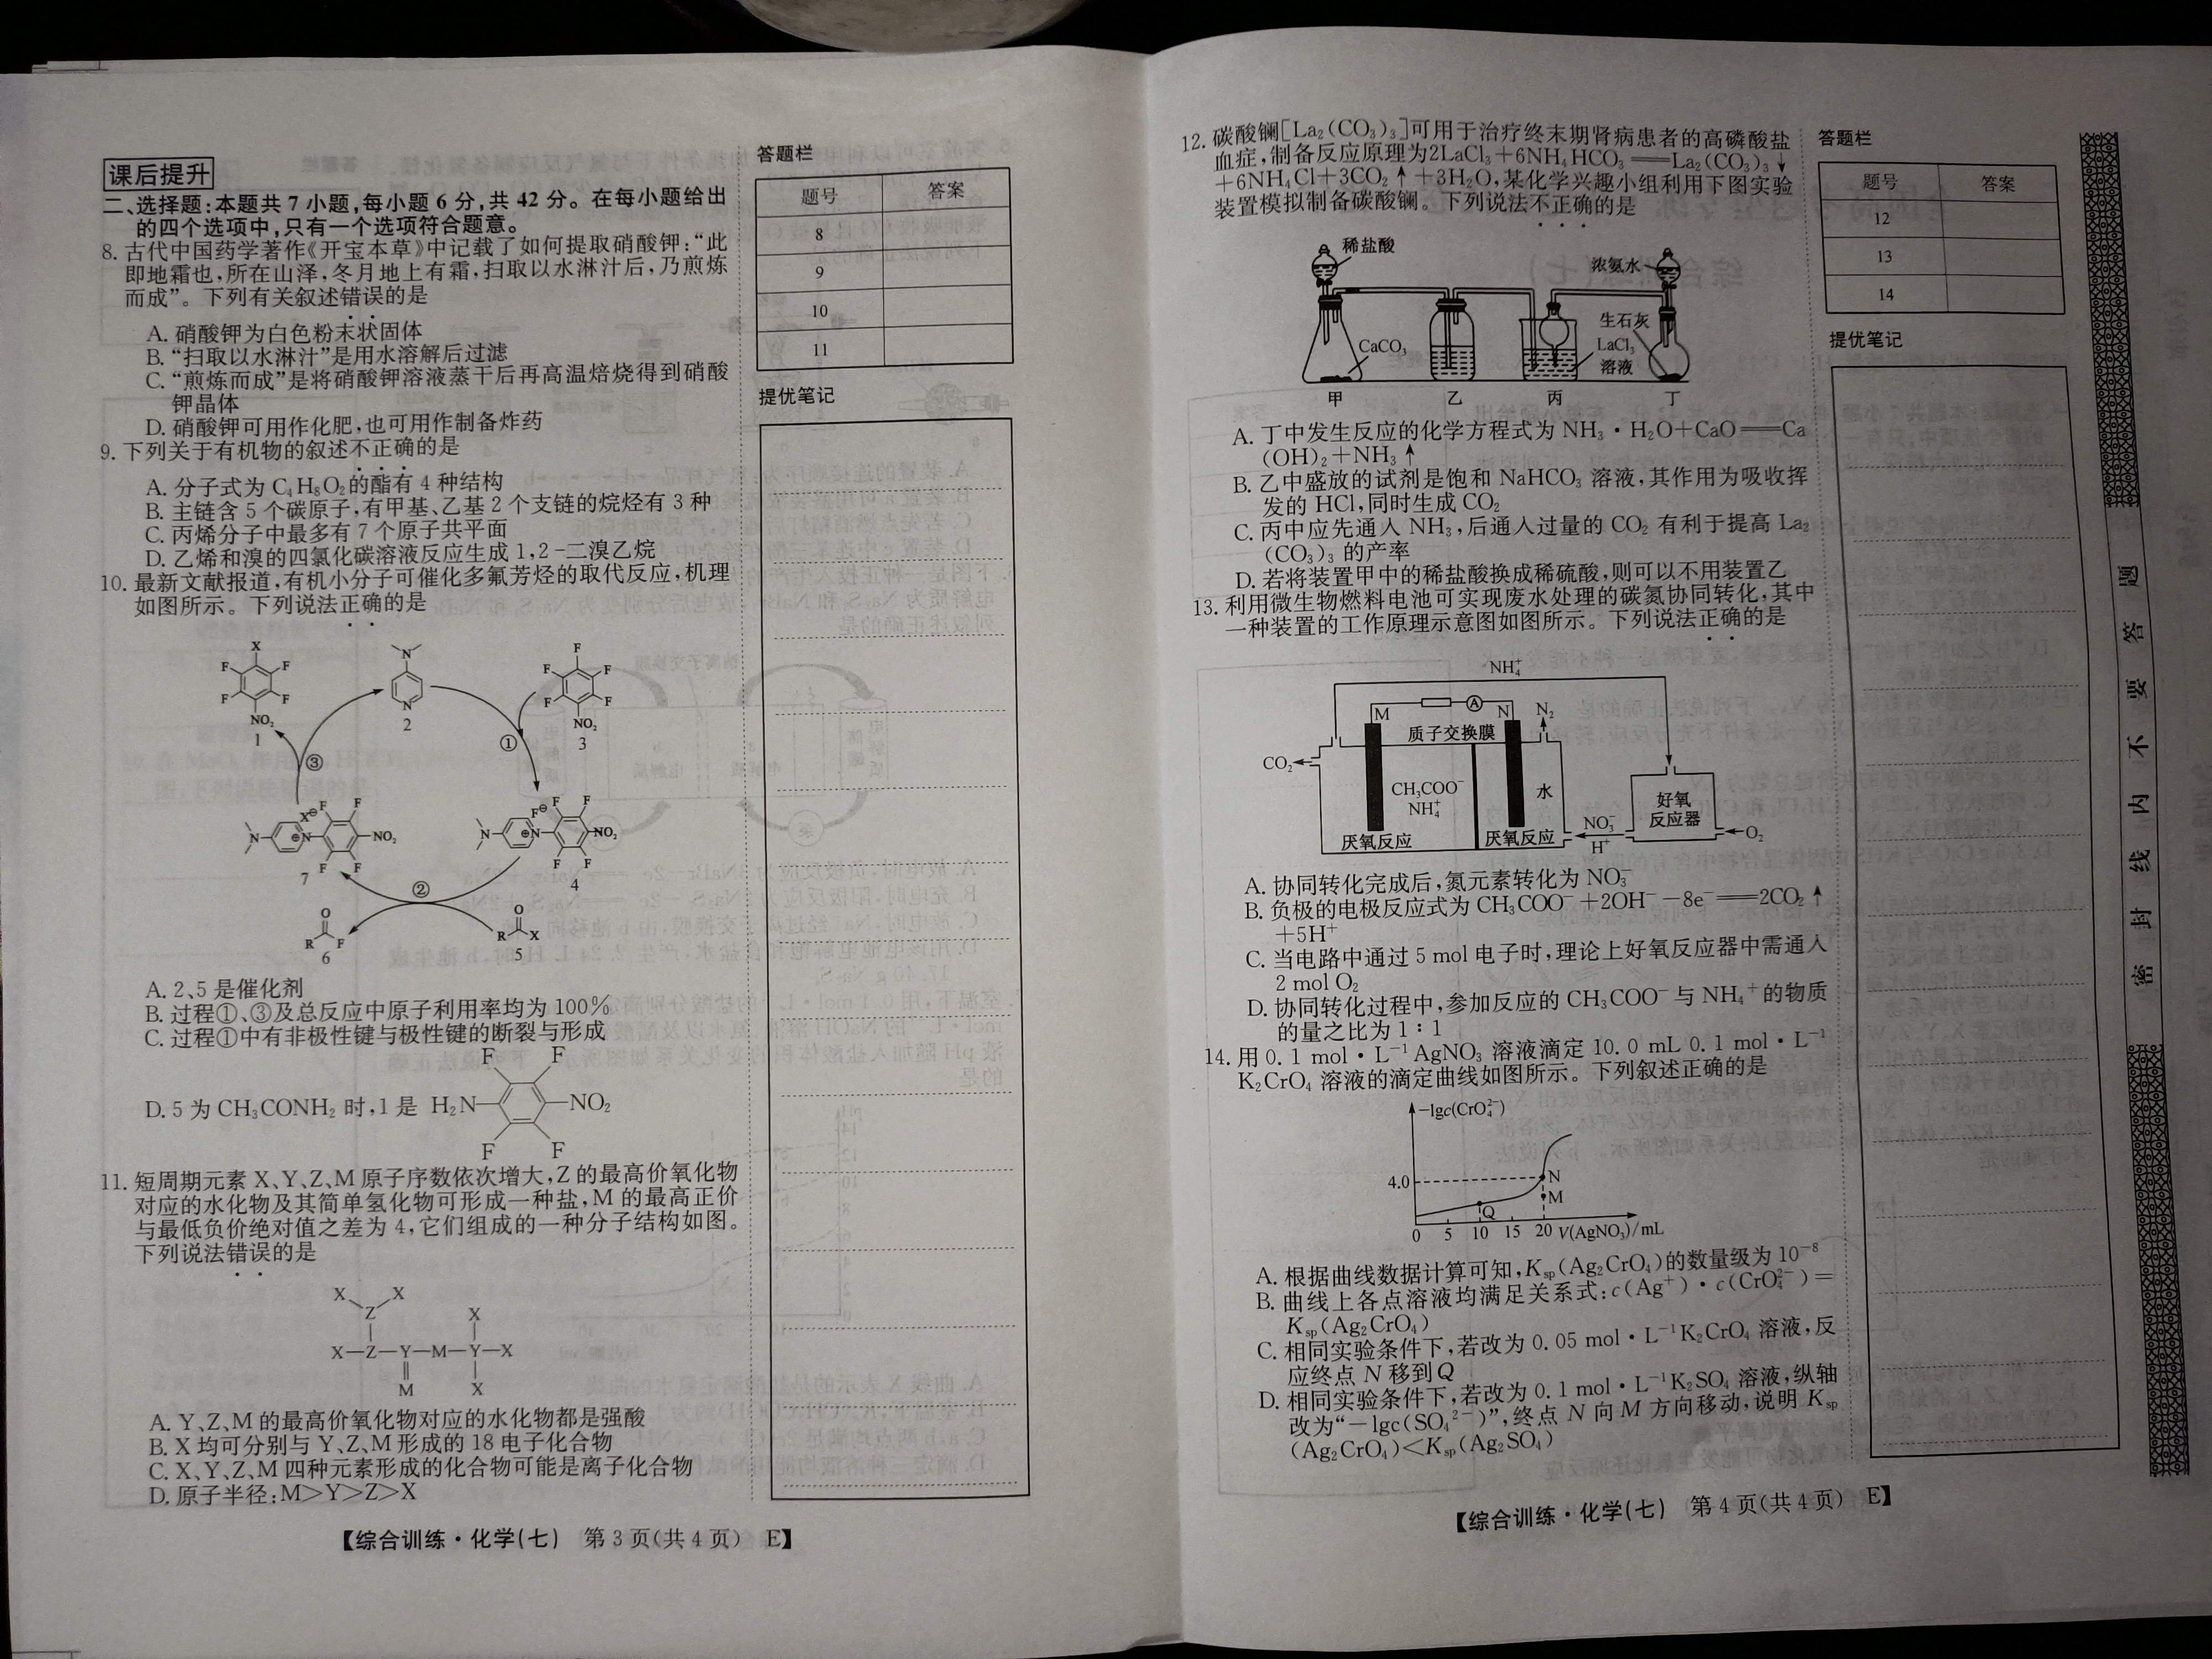 课后提升
二、选择题:本题共 7 小题,每小题 6 分,共 42 分。在每小题给出
的四个选项中,只有一个选项符合题意。
8. 古代中国药学著作《开宝本草》中记载了如何提取硝酸钾:“此
即地霜也,所在山泽,冬月地上有霜,扫取以水淋汁后,乃煎炼
而成”。下列有关叙述错误的是
A. 硝酸钾为白色粉末状固体
B. “扫取以水淋汁”是用水溶解后过滤
C. “煎炼而成”是将硝酸钾溶液蒸干后再高温焙烧得到硝酸
钾晶体
D. 硝酸钾可用作化肥,也可用作制备炸药
9. 下列关于有机物的叙述不正确的是
A. 分子式为 C₄H₈O₂的酯有 4 种结构
B. 主链含 5 个碳原子,有甲基、乙基 2 个支链的烷烃有 3 种
C. 丙烯分子中最多有 7 个原子共平面
D. 乙烯和溴的四氯化碳溶液反应生成 1,2-二溴乙烷
10. 最新文献报道,有机小分子可催化多氟芳烃的取代反应,机理
如图所示。下列说法正确的是
X
F F
F F
NO₂
1
N
N
2
F
F F
F F
NO₂
3
①
③
N N⊕ X⊖ F F F F NO₂
7
N N⊕ F⊖ F F F F NO₂
4
②
O
R F
6
O
R X
5
A. 2、5 是催化剂
B. 过程①、③及总反应中原子利用率均为 100%
C. 过程①中有非极性键与极性键的断裂与形成
F F
D. 5 为 CH₃CONH₂ 时,1 是 H₂N— —NO₂
F F
11. 短周期元素 X、Y、Z、M 原子序数依次增大,Z 的最高价氧化物
对应的水化物及其简单氢化物可形成一种盐,M 的最高正价
与最低负价绝对值之差为 4,它们组成的一种分子结构如图。
下列说法错误的是
X X
Z X
X—Z—Y—M—Y—X
M X
A. Y、Z、M 的最高价氧化物对应的水化物都是强酸
B. X 均可分别与 Y、Z、M 形成的 18 电子化合物
C. X、Y、Z、M 四种元素形成的化合物可能是离子化合物
D. 原子半径:M>Y>Z>X
答题栏
题号 答案
8
9
10
11
提优笔记
【综合训练·化学(七) 第 3 页(共 4 页) E】
12. 碳酸镧[La₂(CO₃)₃]可用于治疗终末期肾病患者的高磷酸盐
血症,制备反应原理为2LaCl₃+6NH₄HCO₃══La₂(CO₃)₃↓
+6NH₄Cl+3CO₂↑+3H₂O,某化学兴趣小组利用下图实验
装置模拟制备碳酸镧。下列说法不正确的是
稀盐酸
浓氨水
生石灰
CaCO₃
LaCl₃
溶液
甲 乙 丙 丁
A. 丁中发生反应的化学方程式为 NH₃·H₂O+CaO══Ca
(OH)₂+NH₃↑
B. 乙中盛放的试剂是饱和 NaHCO₃ 溶液,其作用为吸收挥
发的 HCl,同时生成 CO₂
C. 丙中应先通入 NH₃,后通入过量的 CO₂ 有利于提高 La₂
(CO₃)₃ 的产率
D. 若将装置甲中的稀盐酸换成稀硫酸,则可以不用装置乙
13. 利用微生物燃料电池可实现废水处理的碳氮协同转化,其中
一种装置的工作原理示意图如图所示。下列说法正确的是
NH₄⁺
A
M N N₂
质子交换膜
CO₂
CH₃COO⁻
NH₄⁺
水
好氧
反应器
O₂
NO₃⁻
H⁺
厌氧反应 厌氧反应
A. 协同转化完成后,氮元素转化为 NO₃⁻
B. 负极的电极反应式为 CH₃COO⁻+2OH⁻−8e⁻══2CO₂↑
+5H⁺
C. 当电路中通过 5 mol 电子时,理论上好氧反应器中需通入
2 mol O₂
D. 协同转化过程中,参加反应的 CH₃COO⁻与 NH₄⁺的物质
的量之比为 1∶1
14. 用 0.1 mol·L⁻¹ AgNO₃ 溶液滴定 10.0 mL 0.1 mol·L⁻¹
K₂CrO₄ 溶液的滴定曲线如图所示。下列叙述正确的是
−lgc(CrO₄²⁻)
4.0
N
M
Q
0 5 10 15 20 V(AgNO₃)/mL
A. 根据曲线数据计算可知,Ksp(Ag₂CrO₄)的数量级为 10⁻⁸
B. 曲线上各点溶液均满足关系式:c(Ag⁺)·c(CrO₄²⁻)=
Ksp(Ag₂CrO₄)
C. 相同实验条件下,若改为 0.05 mol·L⁻¹K₂CrO₄ 溶液,反
应终点 N 移到Q
D. 相同实验条件下,若改为 0.1 mol·L⁻¹K₂SO₄ 溶液,纵轴
改为“−lgc(SO₄²⁻)”,终点 N 向 M 方向移动,说明 Ksp
(Ag₂CrO₄)<Ksp(Ag₂SO₄)
答题栏
题号 答案
12
13
14
提优笔记
密 封 线 内 不 要 答 题
【综合训练·化学(七) 第 4 页(共 4 页) E】